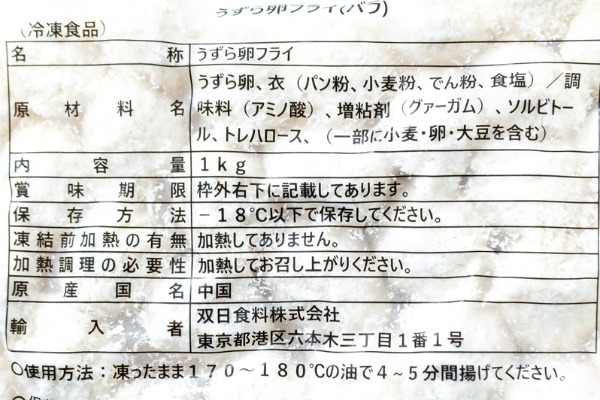 うずら卵フライ(バラ)
(冷凍食品)
名称 うずら卵フライ
原材料名 うずら卵、衣(パン粉、小麦粉、でん粉、食塩)／調
味料(アミノ酸)、増粘剤(グァーガム)、ソルビトー
ル、トレハロース、(一部に小麦・卵・大豆を含む)
内容量 1kg
賞味期限 枠外右下に記載してあります。
保存方法 −18℃以下で保存してください。
凍結前加熱の有無 加熱してありません。
加熱調理の必要性 加熱してお召し上がりください。
原産国名 中国
輸入者 双日食料株式会社
東京都港区六本木三丁目1番1号
○使用方法：凍ったまま170～180℃の油で4～5分間揚げてください。